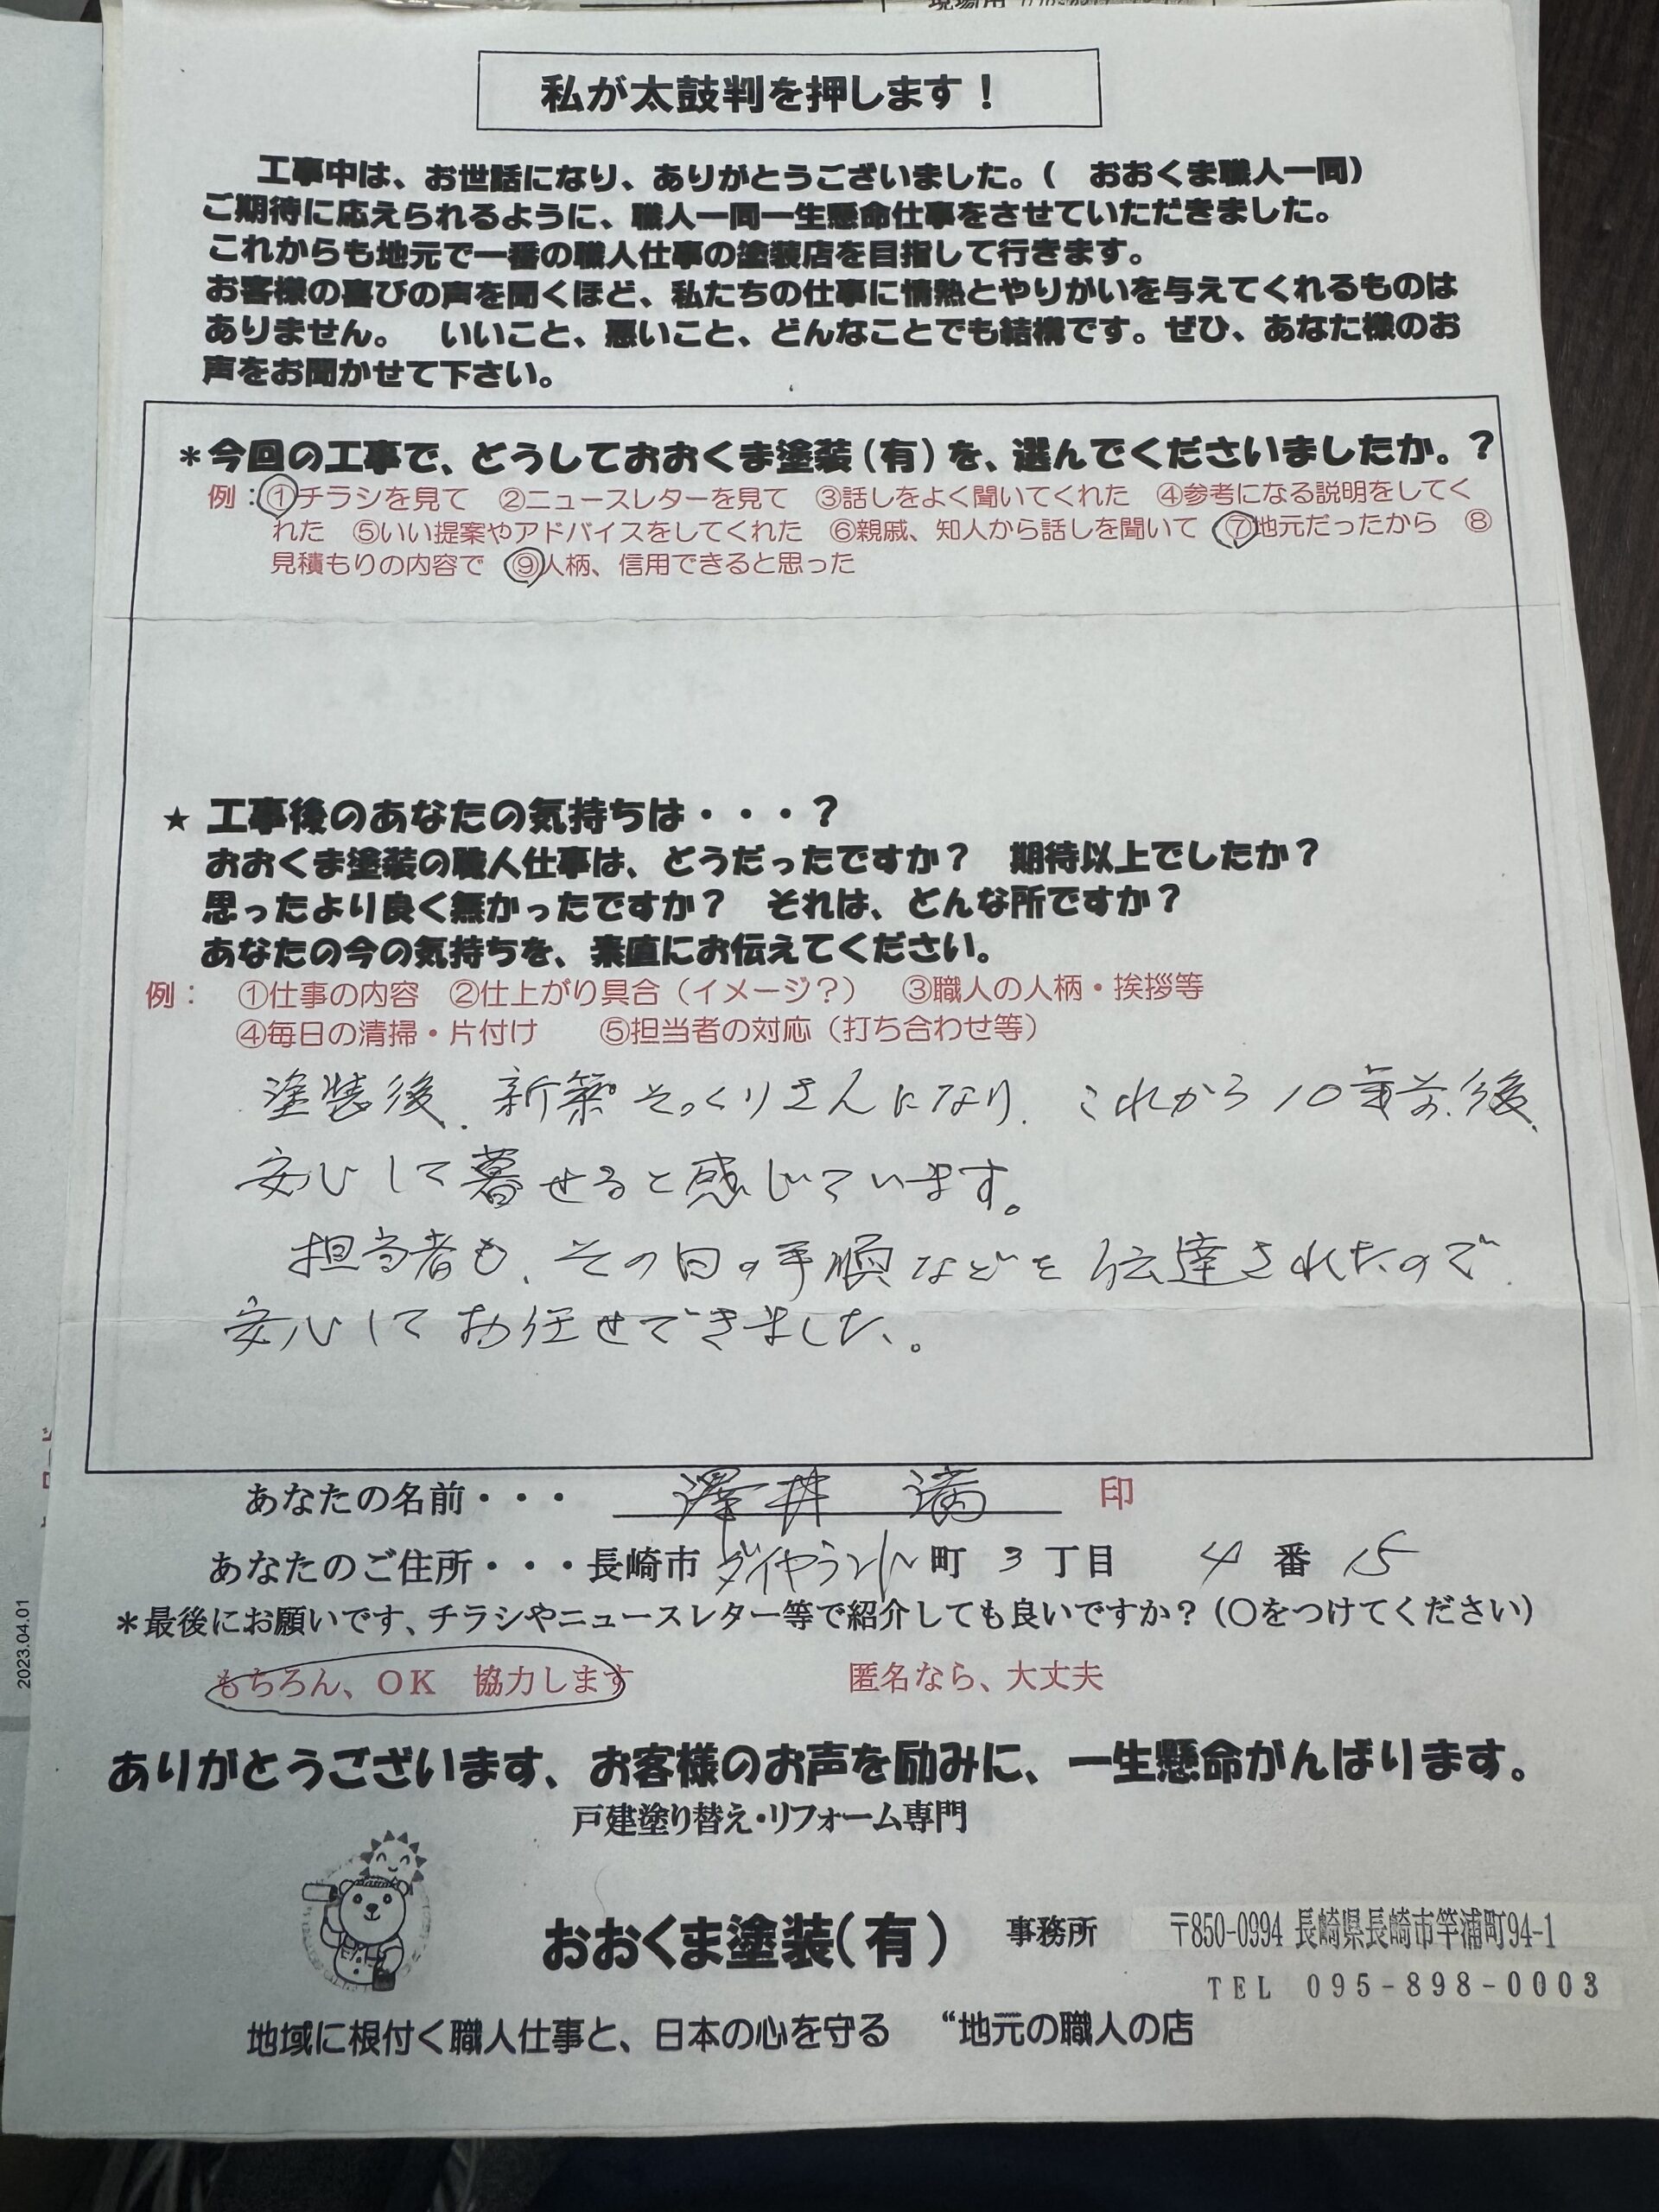 私が太鼓判を押します！
工事中は、お世話になり、ありがとうございました。（　おおくま職人一同）
ご期待に応えられるように、職人一同一生懸命仕事をさせていただきました。
これからも地元で一番の職人仕事の塗装店を目指して行きます。
お客様の喜びの声を聞くほど、私たちの仕事に情熱とやりがいを与えてくれるものは
ありません。　いいこと、悪いこと、どんなことでも結構です。ぜひ、あなた様のお
声をお聞かせて下さい。
＊今回の工事で、どうしておおくま塗装（有）を、選んでくださいましたか。？
例：①チラシを見て　②ニュースレターを見て　③話しをよく聞いてくれた　④参考になる説明をしてく
れた　⑤いい提案やアドバイスをしてくれた　⑥親戚、知人から話しを聞いて　⑦地元だったから　⑧
見積もりの内容で　⑨人柄、信用できると思った
★ 工事後のあなたの気持ちは・・・？
おおくま塗装の職人仕事は、どうだったですか？　期待以上でしたか？
思ったより良く無かったですか？　それは、どんな所ですか？
あなたの今の気持ちを、素直にお伝えてください。
例：　①仕事の内容　②仕上がり具合（イメージ？）　③職人の人柄・挨拶等
④毎日の清掃・片付け　　⑤担当者の対応（打ち合わせ等）
塗装後、新築そっくりさんになり、これから10年前後、
安心して暮せると感じています。
担当者も、その日の手順などを伝達されたので、
安心してお任せできました。
あなたの名前・・・　澤井　満　印
あなたのご住所・・・長崎市ダイヤランド町 3 丁目　4 番 15
＊最後にお願いです、チラシやニュースレター等で紹介しても良いですか？（〇をつけてください）
もちろん、ＯＫ　協力します　　匿名なら、大丈夫
ありがとうございます、お客様のお声を励みに、一生懸命がんばります。
戸建塗り替え・リフォーム専門
おおくま塗装（有）　事務所　〒850-0994 長崎県長崎市竿浦町94-1
ＴＥＬ　０９５－８９８－０００３
地域に根付く職人仕事と、日本の心を守る　“地元の職人の店
2023.04.01